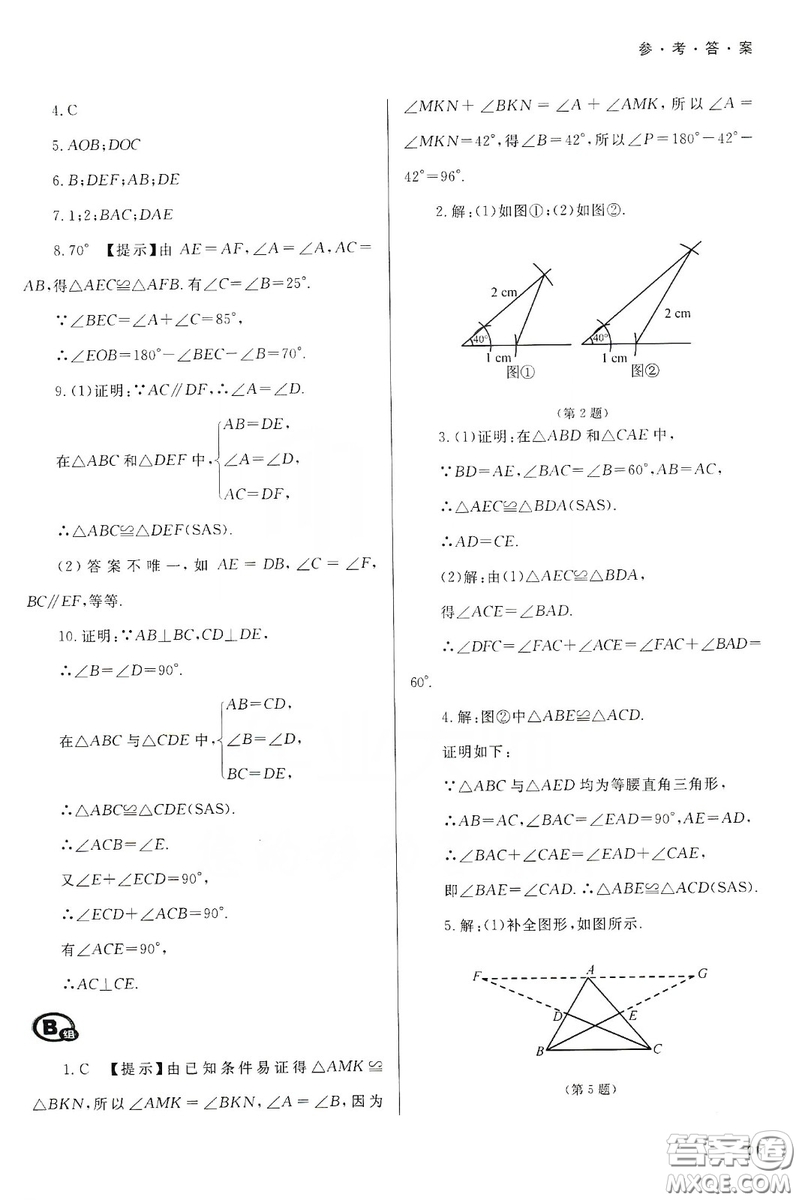 参·考·答·案
4.C
5.AOB;DOC
6.B;DEF;AB;DE
7.1;2;BAC;DAE
8.70° 【提示】由 AE=AF,∠A=∠A,AC=
AB,得△AEC≌△AFB.有∠C=∠B=25°.
∵∠BEC=∠A+∠C=85°,
∴∠EOB=180°-∠BEC-∠B=70°.
9.(1)证明:∵AC∥DF,∴∠A=∠D.
AB=DE,
在△ABC 和△DEF 中,∠A=∠D,
AC=DF,
∴△ABC≌△DEF(SAS).
(2)答案不唯一,如 AE=DB,∠C=∠F,
BC∥EF,等等.
10.证明:∵AB⊥BC,CD⊥DE,
∴∠B=∠D=90°.
AB=CD,
在△ABC 与△CDE 中,∠B=∠D,
BC=DE,
∴△ABC≌△CDE(SAS).
∴∠ACB=∠E.
又∠E+∠ECD=90°,
∴∠ECD+∠ACB=90°.
有∠ACE=90°,
∴AC⊥CE.
B组
1.C 【提示】由已知条件易证得△AMK≌
△BKN,所以∠AMK=∠BKN,∠A=∠B,因为
∠MKN+∠BKN=∠A+∠AMK,所以∠A=
∠MKN=42°,得∠B=42°,所以∠P=180°-42°-
42°=96°.
2.解:(1)如图①;(2)如图②.
2 cm
40°
1 cm
图①
2 cm
40°
1 cm
图②
(第 2 题)
3.(1)证明:在△ABD 和△CAE 中,
∵BD=AE,∠BAC=∠B=60°,AB=AC,
∴△AEC≌△BDA(SAS).
∴AD=CE.
(2)解:由(1)△AEC≌△BDA,
得∠ACE=∠BAD.
∴∠DFC=∠FAC+∠ACE=∠FAC+∠BAD=
60°.
4.解:图②中△ABE≌△ACD.
证明如下:
∵△ABC 与△AED 均为等腰直角三角形,
∴AB=AC,∠BAC=∠EAD=90°,AE=AD,
∴∠BAC+∠CAE=∠EAD+∠CAE,
即∠BAE=∠CAD.∴△ABE≌△ACD(SAS).
5.解:(1)补全图形,如图所示.
F A G
D E
B C
(第 5 题)
答案圈
MXQE.COM